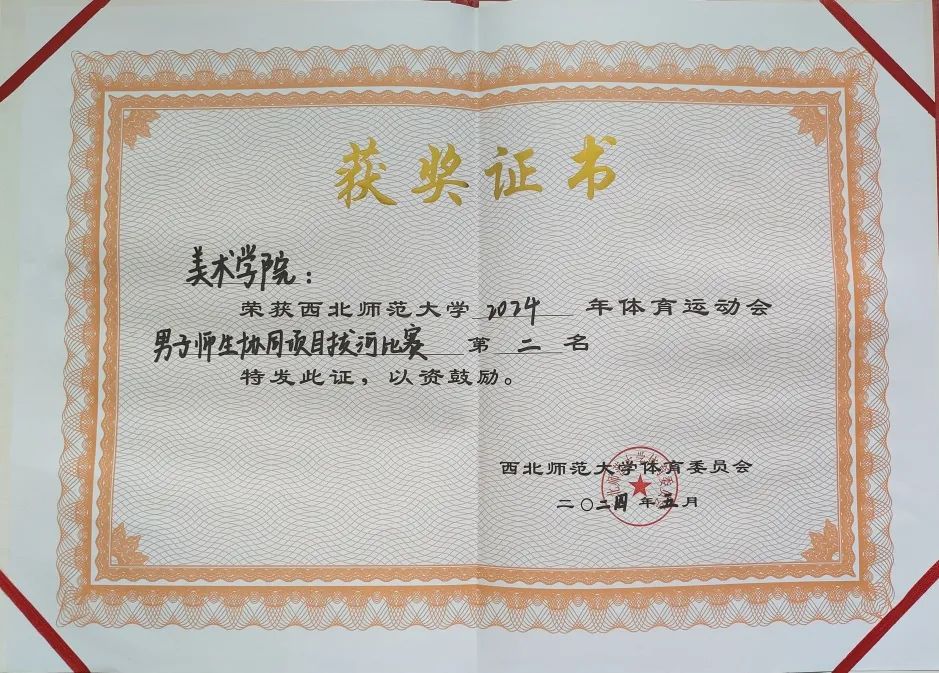 获奖证书
美术学院：
荣获西北师范大学 2024 年体育运动会
男子师生协同项目拔河比赛 第 二 名
特发此证，以资鼓励。
西北师范大学体育委员会
二〇二四年五月